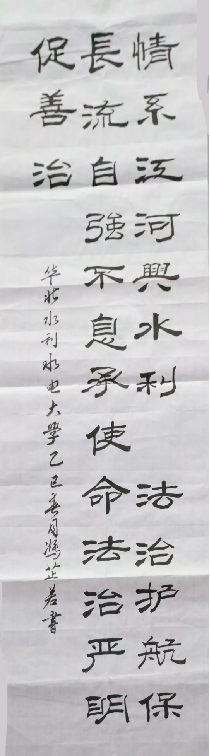 情系江河興水利 法治护航保
長流自強不息承使命法治严明
促善治
华北水利水电大學乙巳春月馮芷若書